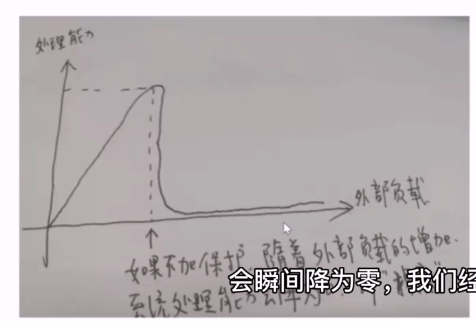 处理能力
外部负载
如果不加保护,随着外部负载的增加.
系统处理能力会降为
会瞬间降为零,我们经